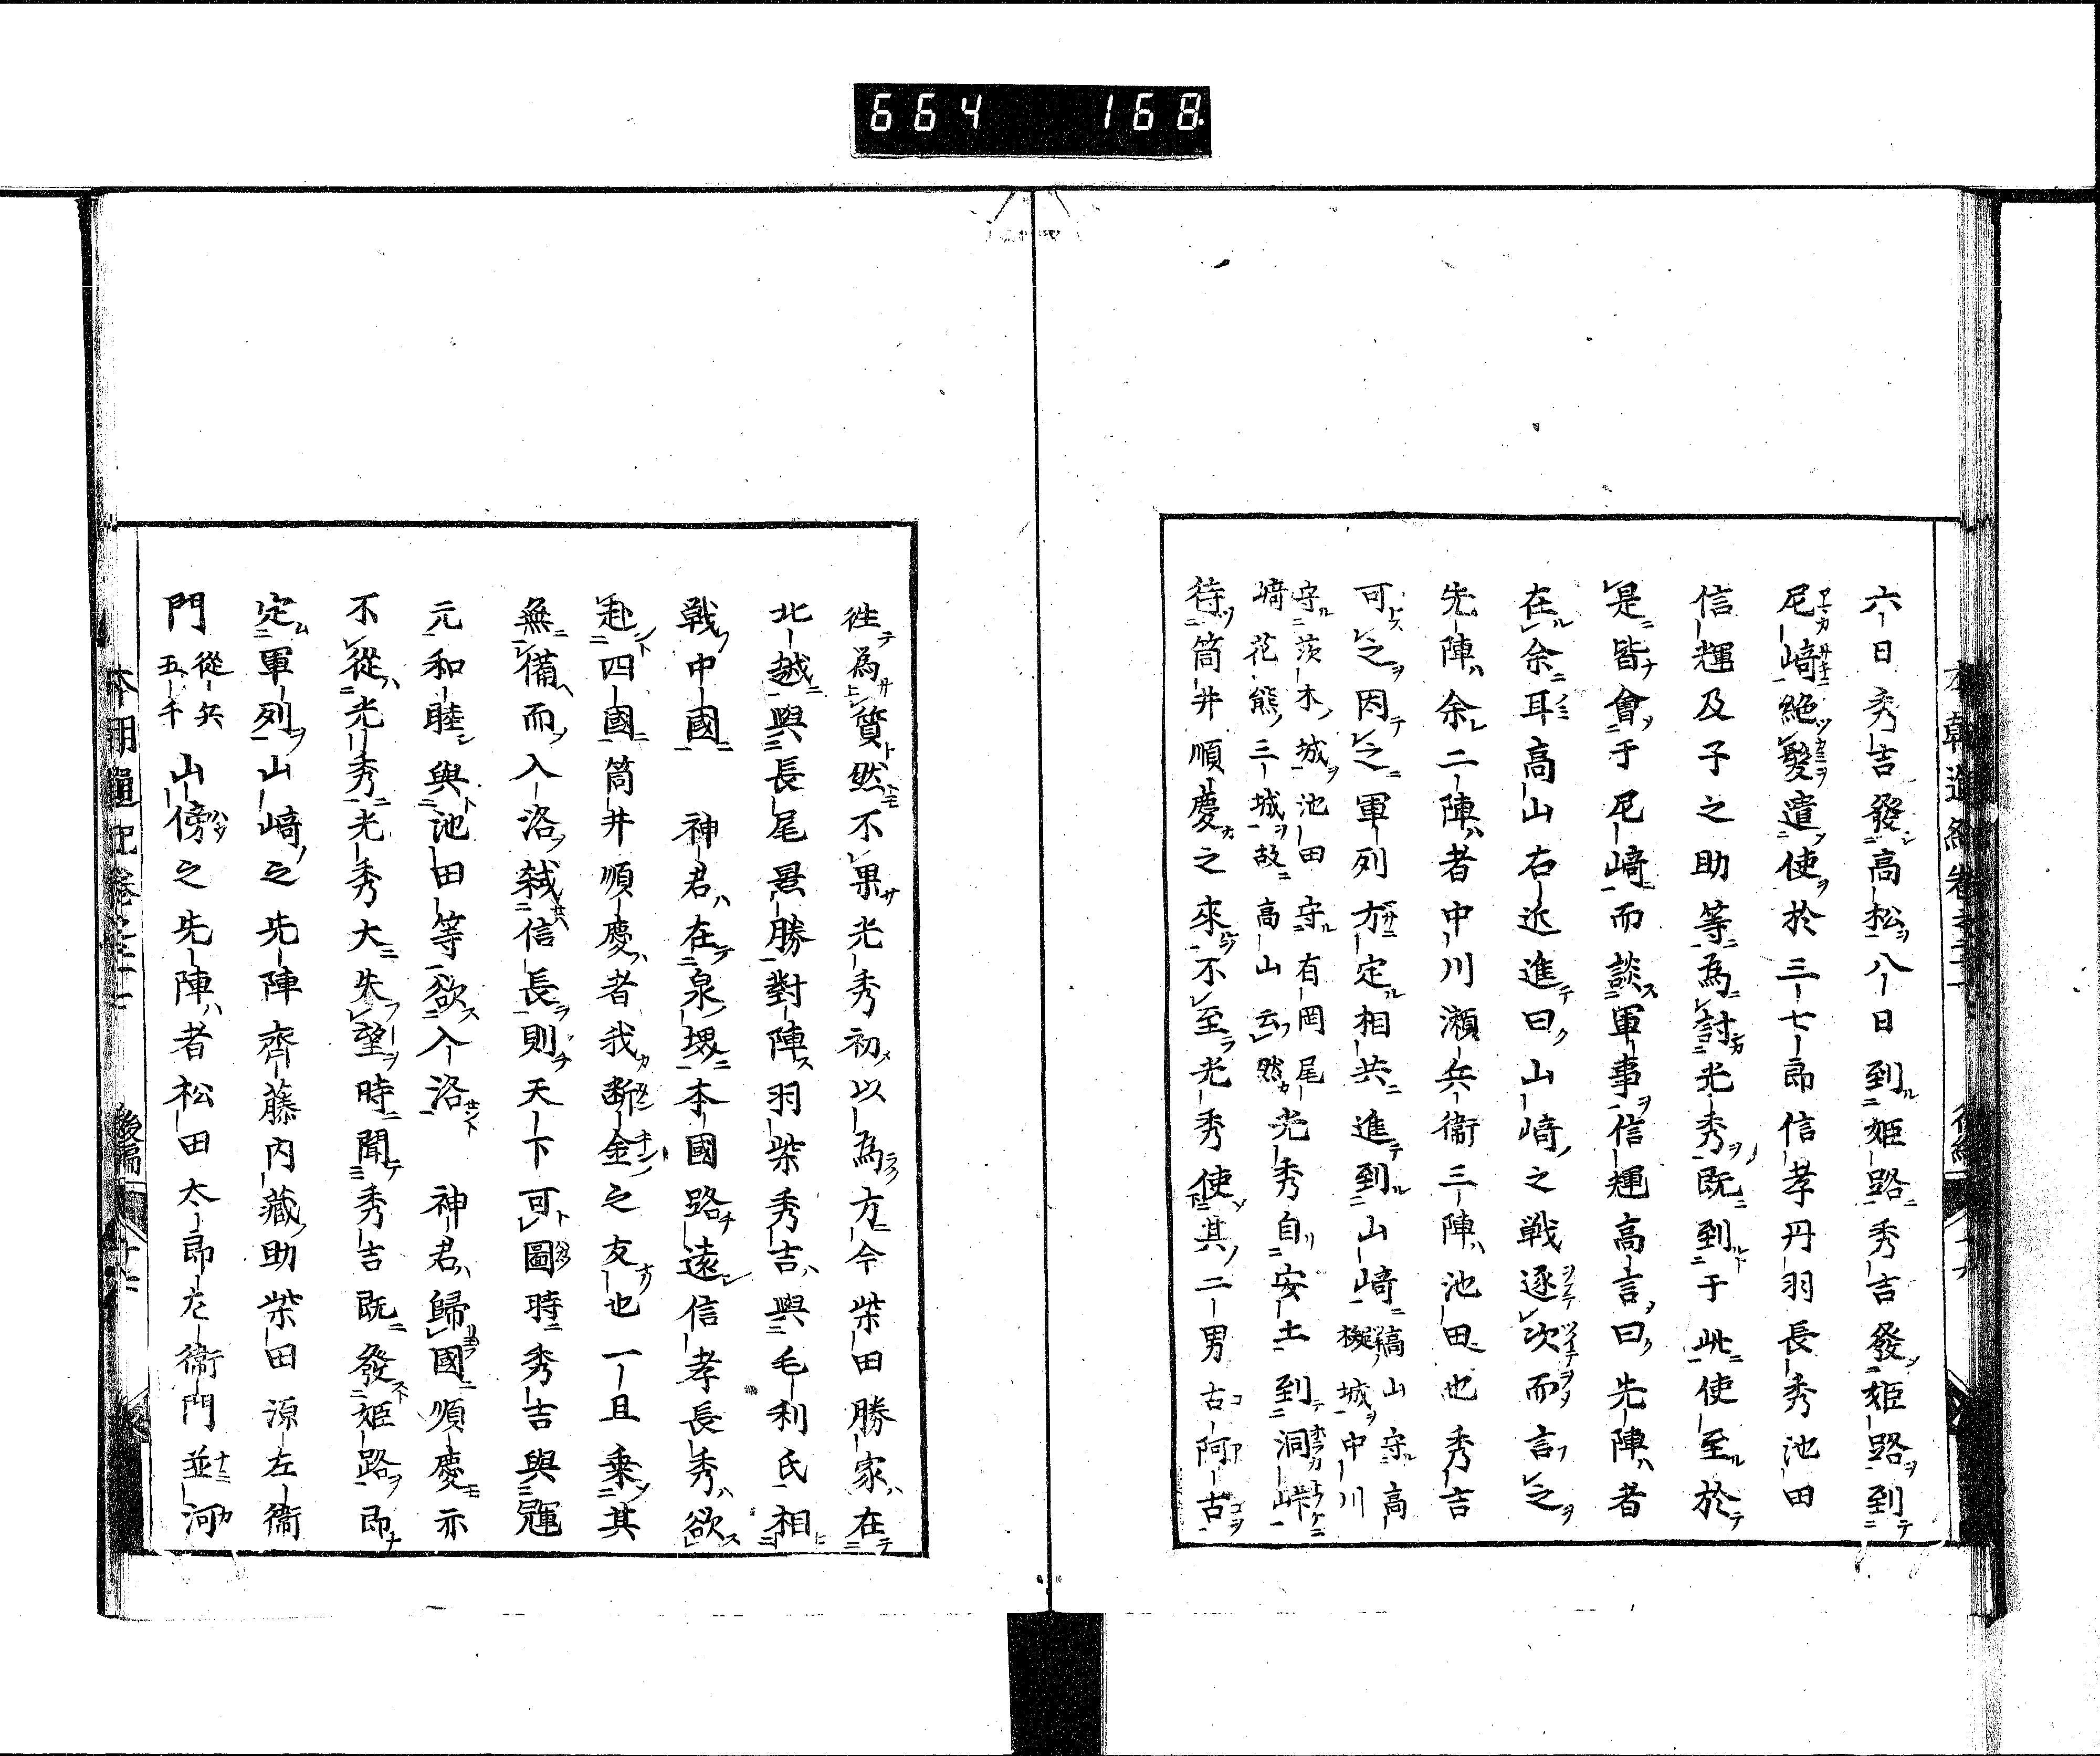 664 168
六日秀吉發高松八日到姫路秀吉發姫路到
尼﨑絶髮遣使於三七郎信孝丹羽長秀池田
信輝及子之助等為討光秀既到于此使至於
是皆會于尼﨑而談軍事信輝高言曰先陣者
在余耳高山右近進曰山﨑之戦逐次而言之
先陣余二陣者中川瀬兵衞三陣池田也秀吉
可之因之軍列方定相共進到山﨑
槁山守高
擬城中川
守茨木城池田守有岡尾
﨑花熊三城故高山云
然光秀自安土到洞峠
待筒井順慶之來不至光秀使其二男古阿古
徃為質然不果光秀初以為方今柴田勝家在
北越與長尾景勝對陣羽柴秀吉與毛利氏相
戦中國 神君在泉堺本國路遠信孝長秀欲
赴四國筒井順慶者我断金之友也一旦乗其
無備而入洛弑信長則天下可圖時秀吉與輝
元和睦與池田等欲入洛 神君歸國順慶亦
不從光秀光秀大失望時聞秀吉既發姫路即
定軍列山﨑之先陣齊藤内藏助柴田源左衞
門
從兵
五千
山傍之先陣者松田太郎左衞門並河
本朝通紀卷之二十 後編 十七